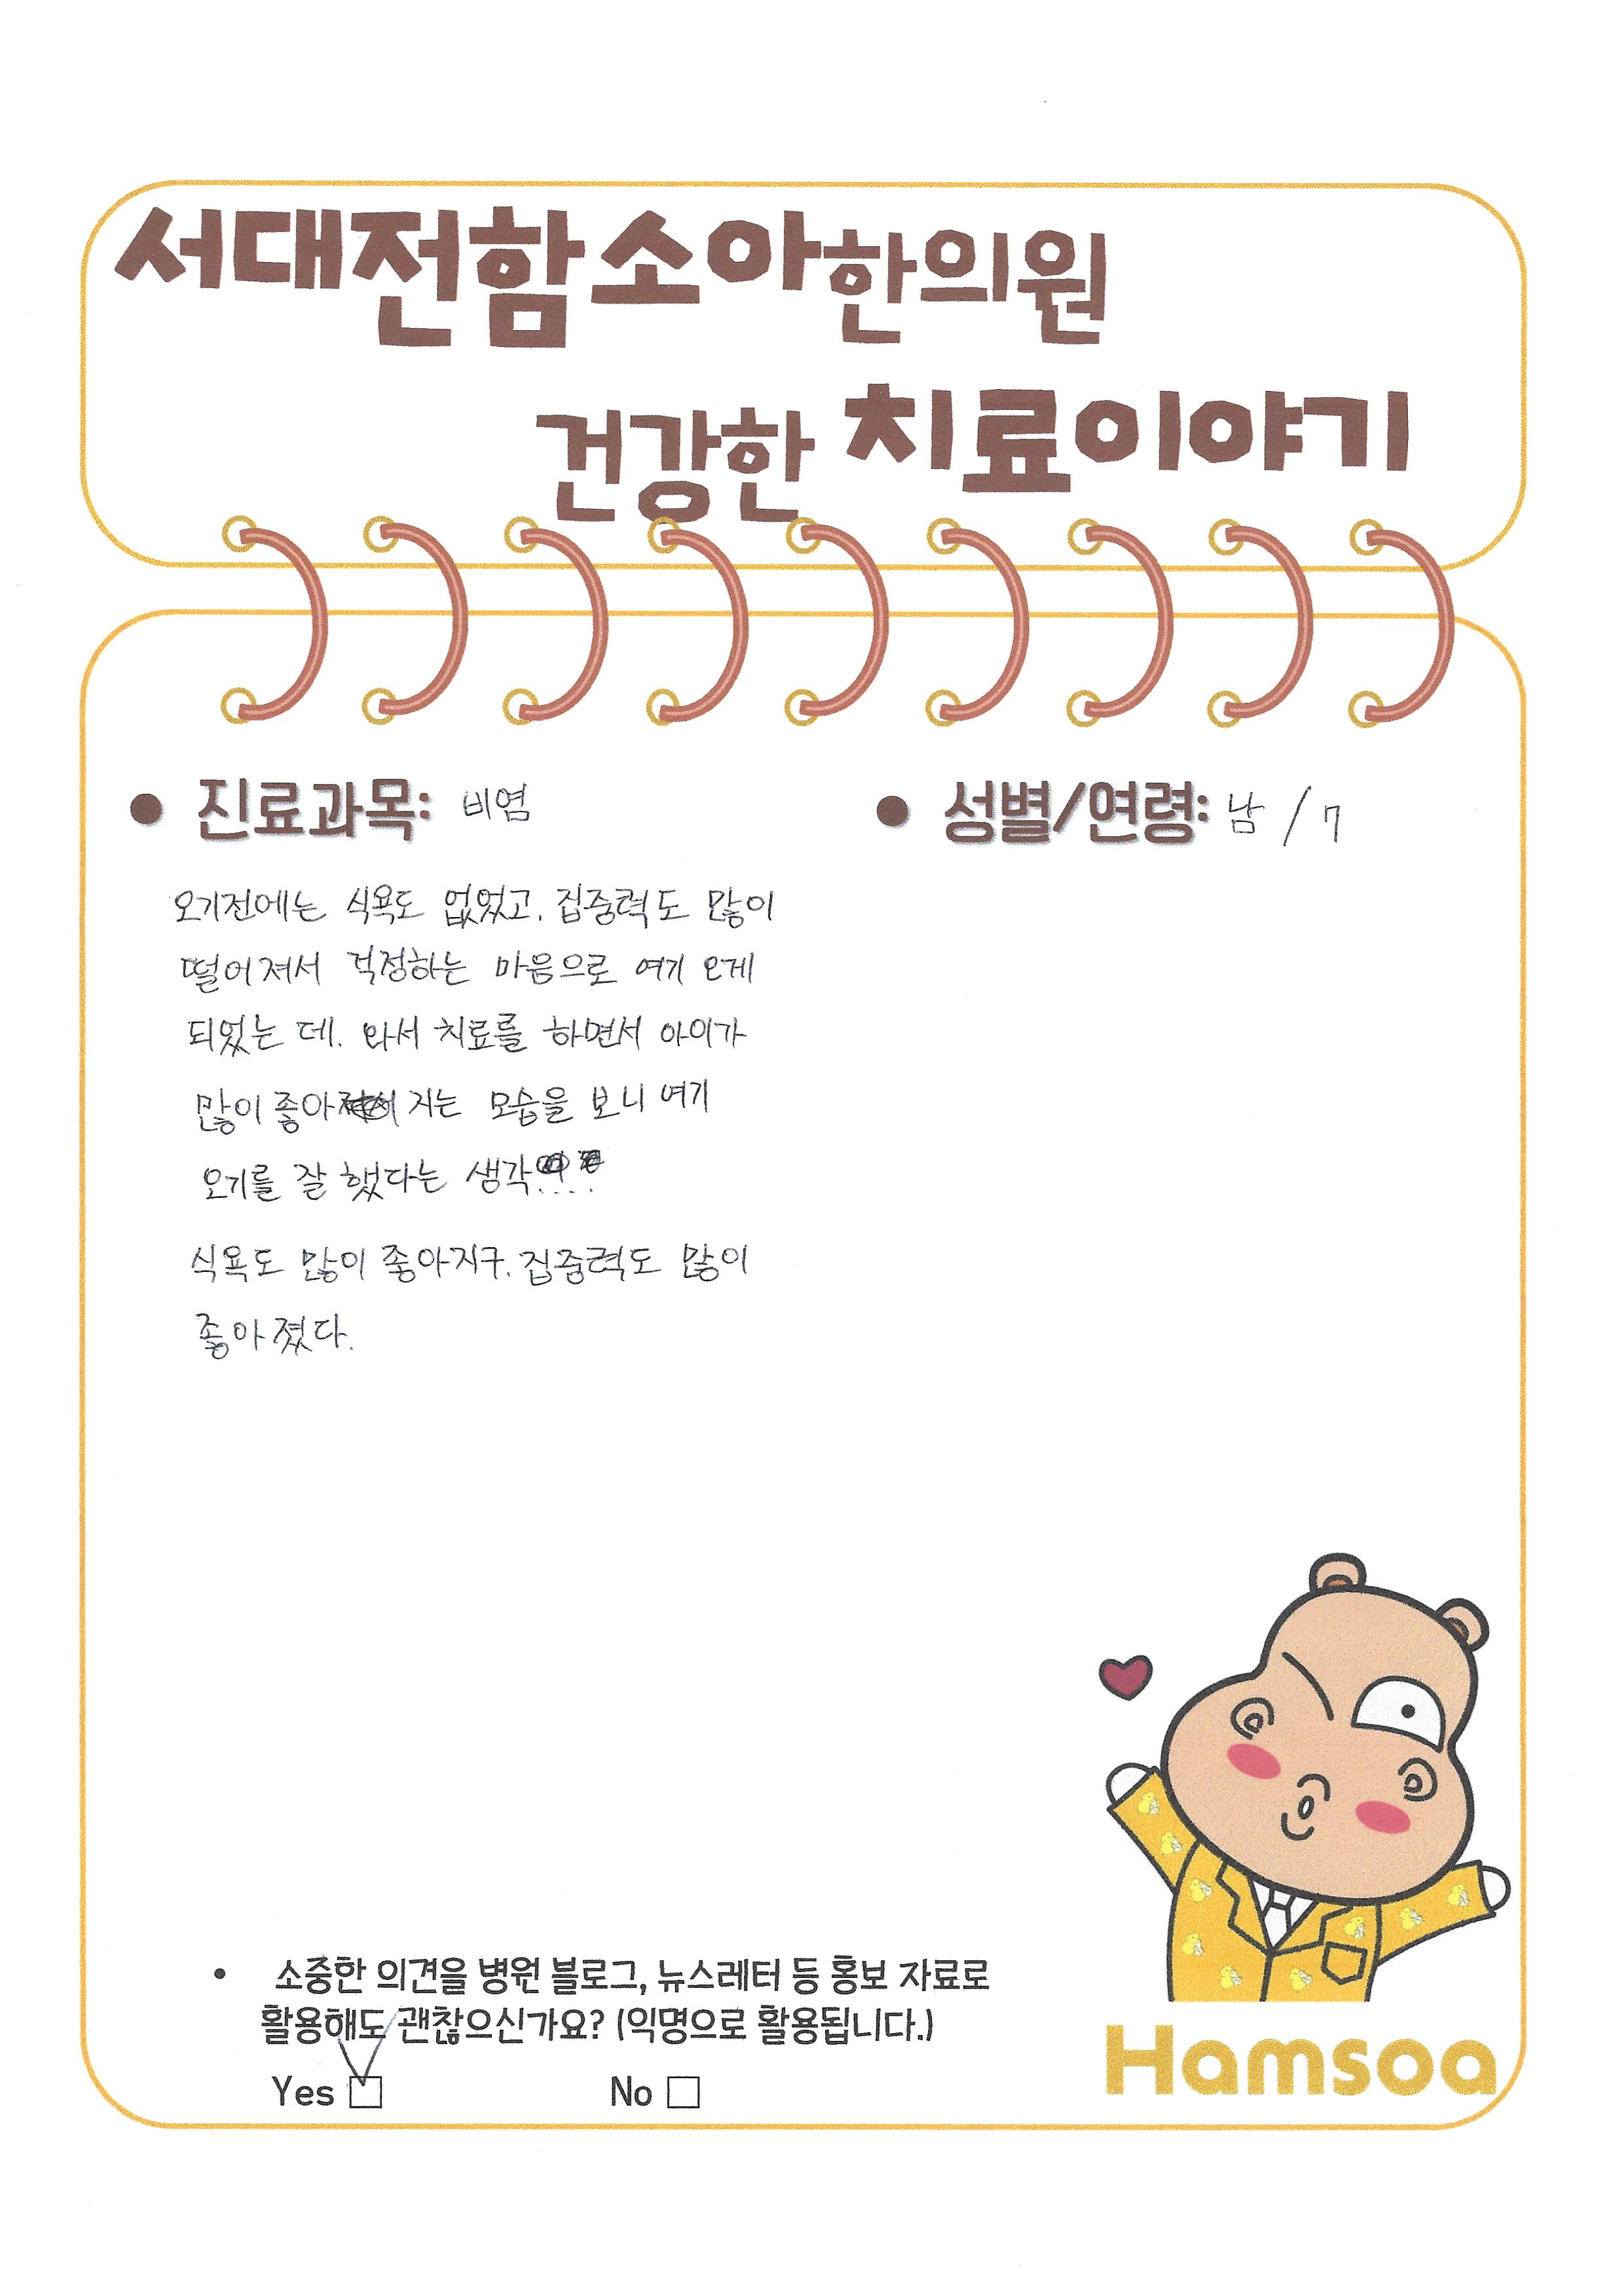 서대전함소아한의원
건강한 치료이야기
진료과목: 비염
성별/연령: 남 / 7
오기전에는 식욕도 없었고, 집중력도 많이
떨어져서 걱정하는 마음으로 여기 오게
되었는 데. 와서 치료를 하면서 아이가
많이 좋아 지는 모습을 보니 여기
오기를 잘 했다는 생각!...
식욕도 많이 좋아지구. 집중력도 많이
좋아졌다.
• 소중한 의견을 병원 블로그, 뉴스레터 등 홍보 자료로
활용해도 괜찮으신가요? (익명으로 활용됩니다.)
Yes ☑ No ☐
Hamsoa